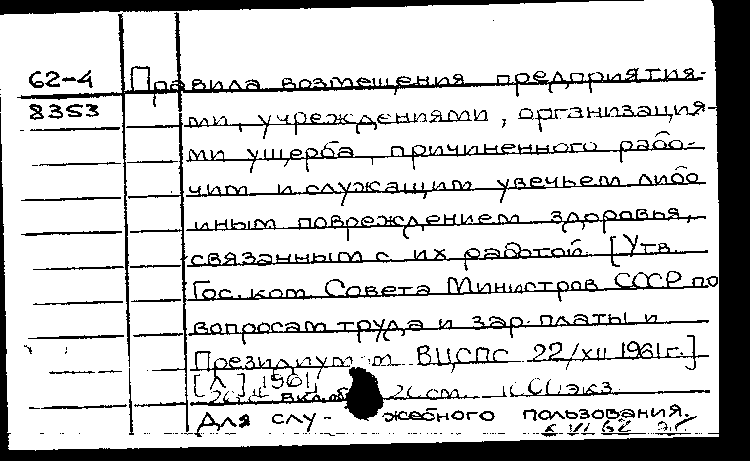 62-4
8353
Правила возмещения предприятия-
ми, учреждениями, организация-
ми ущерба, причиненного рабо-
чим и служащим увечьем либо
иным повреждением здоровья,
связанным с их работой. [Утв.
Гос. ком. Совета Министров СССР по
вопросам труда и зар. платы и
Президиумом ВЦСПС 22/XII 1961 г.]
[Л.] 1961
вкл. об 20 см. экз.
Для слу- жебного пользования.
VI 62